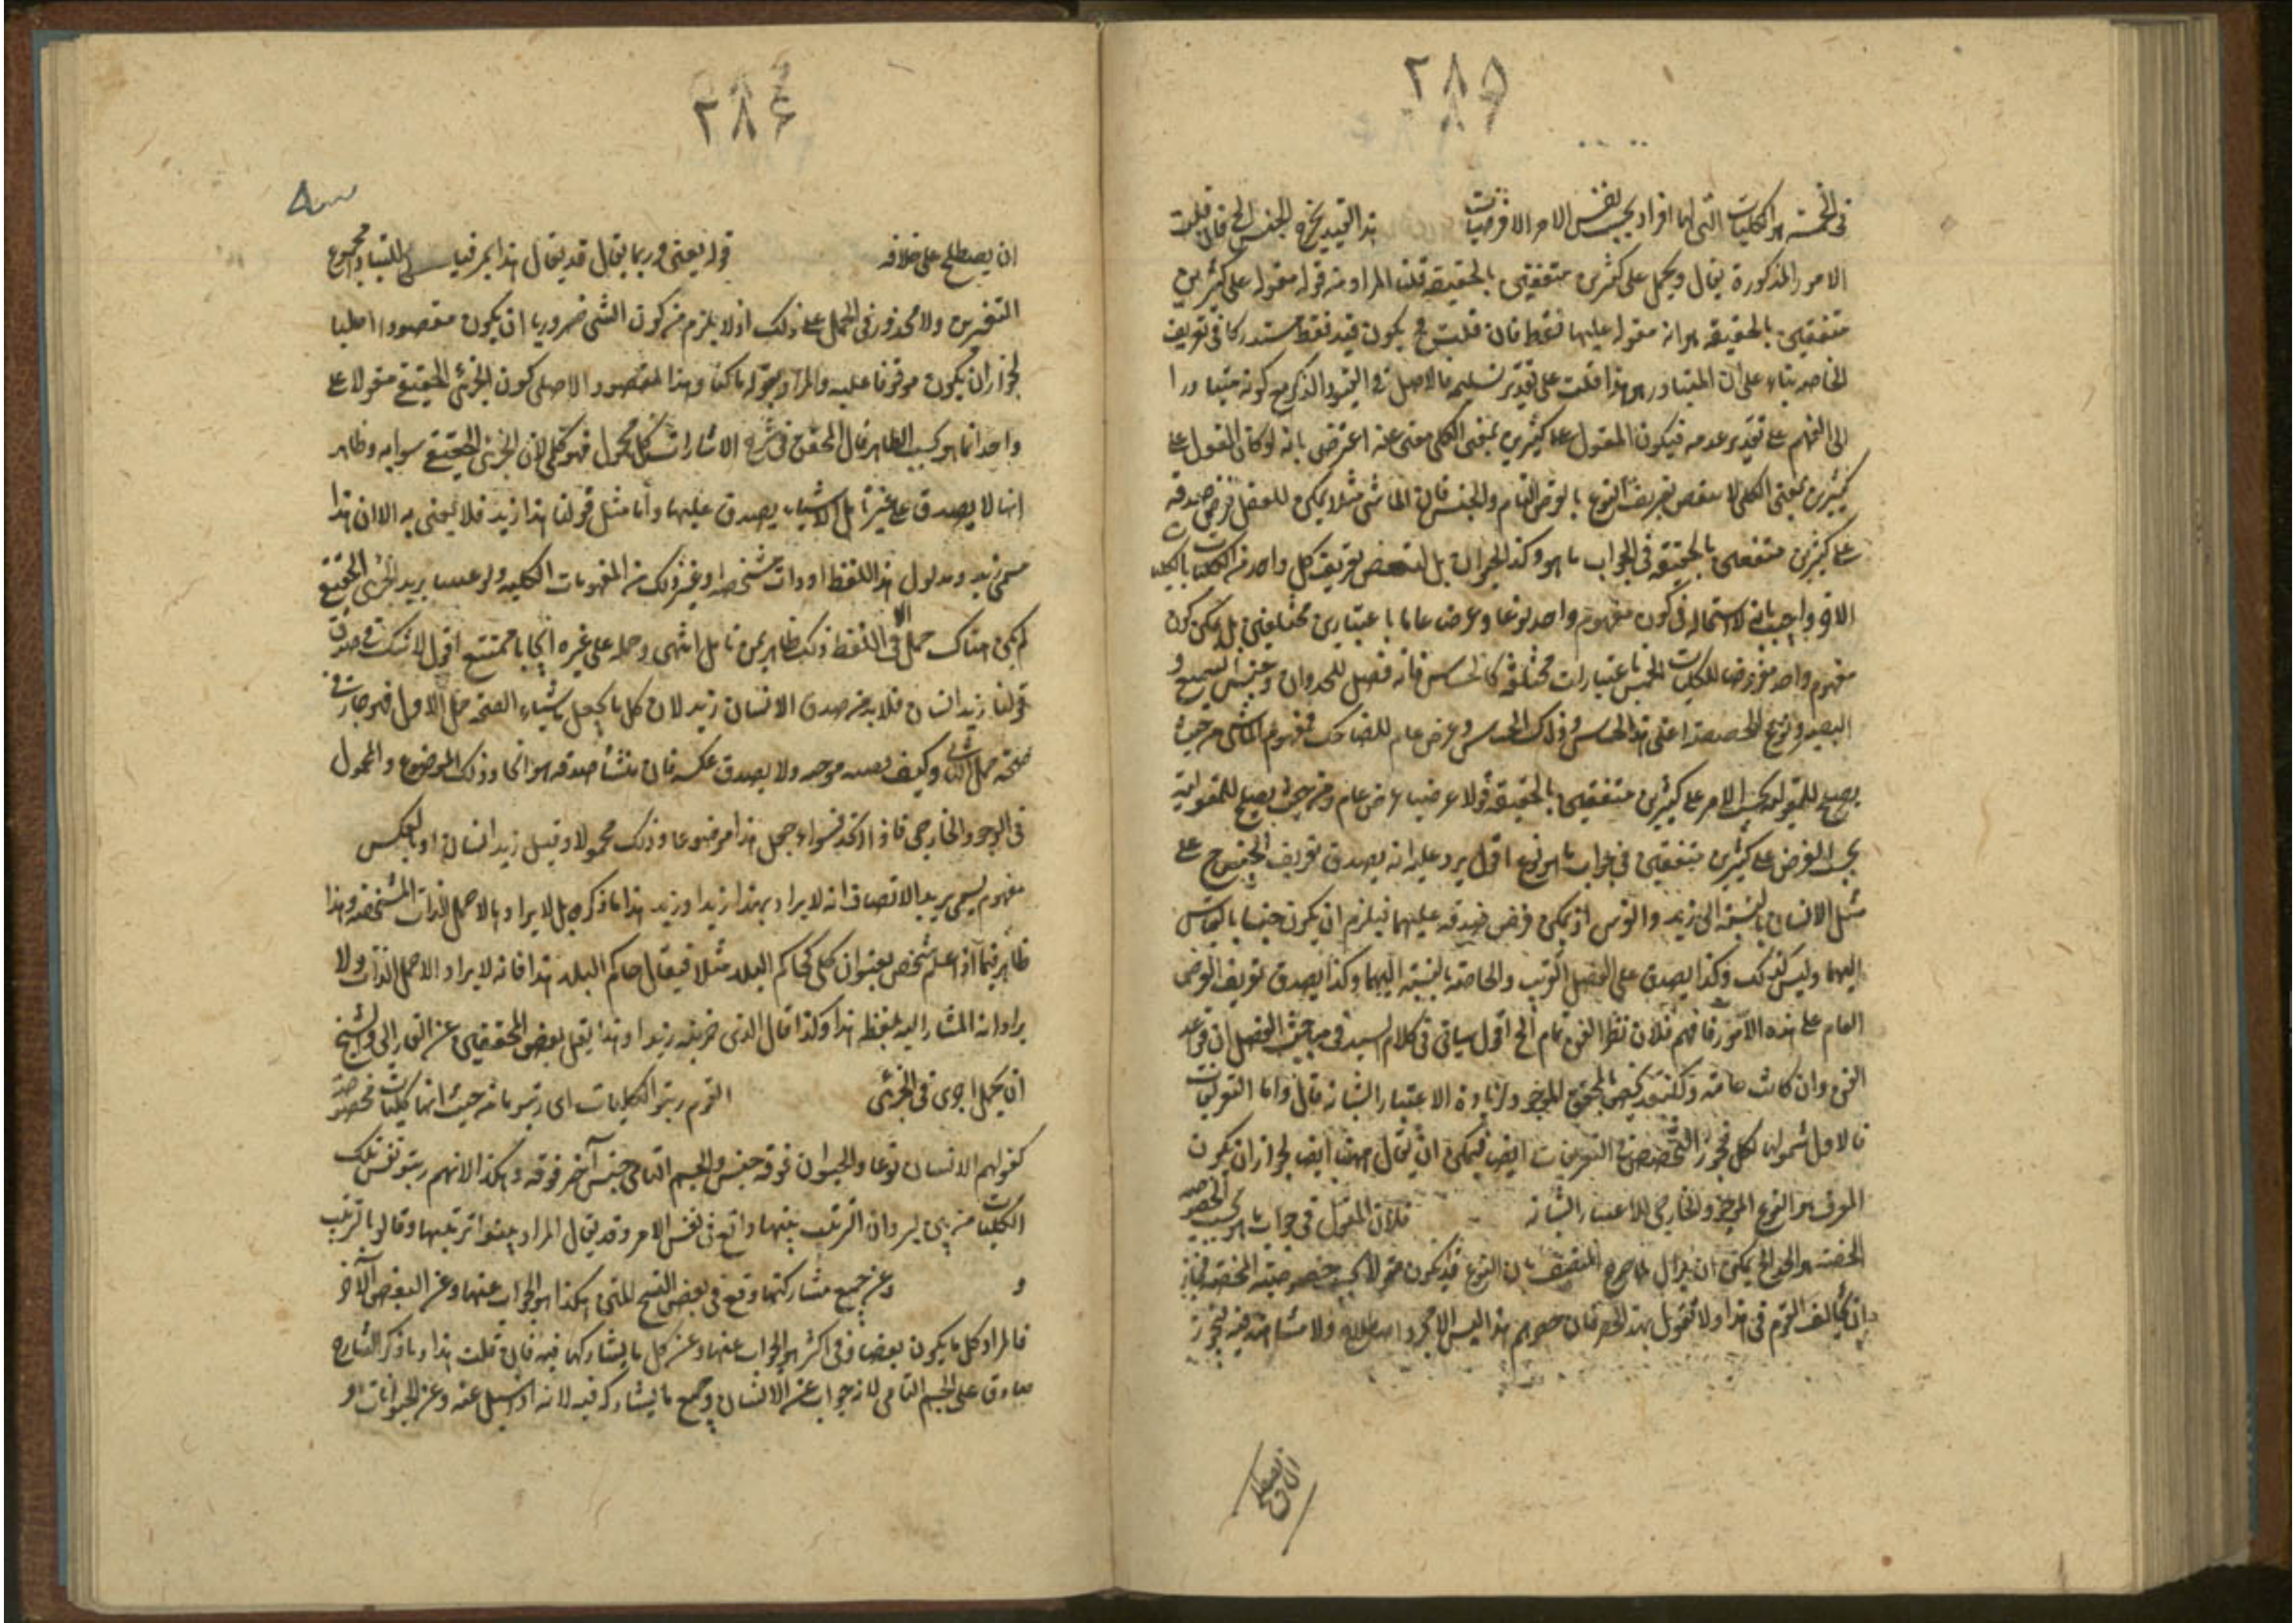 ٢٨٥
في الخمسة هو الكليات التي لها افراد بحسب نفس الامر لا فرضيات هذا التقييد يخرج الجنس الخ فان قلت
الامور المذكورة يقال ويحمل على كثيرين متفقين بالحقيقة قلنا المراد من قوله مقولة على كثيرين
متفقين بالحقيقة هو انه مقول عليها فقط فان قلت فح يكون قيد فقط مستدركا في تعريف
الخاصة بناء على ان المتبادر هو هذا قلت على تقدير تسليمه فالاصل في القيود الذكر مع كونه متبادرا
الى الفهم على تقدير عدمه فيكون المقول على كثيرين بمعنى الكلي مغنى عنه اعترض بانه لو كان المقول على
كثيرين بمعنى الكلي لانتقض تعريف النوع بالعرض العام والجنس فان الماشي مثلا يمكن للعقل فرض صدقه
على كثيرين متفقين بالحقيقة في جواب ما هو وكذا الحيوان بل لنتقض تعريف كل واحد من الكليات بالكليات
الاخر واجيب بانه لا استحالة في كون مفهوم واحد نوعا وعرضا عاما باعتبارين مختلفين بل يمكن كون
مفهوم واحد معروضا للكليات الخمس باعتبارات مختلفة كالحساس فانه فصل للحيوان وجنس للسميع و
البصير ونوع للحصص اعنى هذا الحساس وذاك الحساس وعرض عام للضاحك فمفهوم الماشي من حيث
يصح للمقولية بحسب الامر على كثيرين متفقين بالحقيقة قولا عرضيا عرض عام ومن حيث يصح للمقولية
بحسب الفرض على كثيرين متفقين في جواب ما هو نوع اقول يرد عليه انه يصدق تعريف الجنس ح على
مثل الانسان بالنسبة الى زيد والفرس اذ يمكن فرض صدقه عليهما فيلزم ان يكون جنسا بالقياس
اليهما وليس كذلك وكذا يصدق على الفصل القريب والخاصة بالنسبة اليهما وكذا يصدق تعريف العرض
العام على هذه الامور فافهم فلان نظر الفن عام الخ اقول سيأتي في كلام السيد في مباحث الفصل ان قواعد
الفن وان كانت عامة ولكن قد يختص بالموجود لزيادة الاعتبار بشأنه قال واما التعريفات
فالاولى شمولها لكل فيجوز التخصيص في التعريفات ايضا فيمكن ان يقال ههنا ايضا لجواز ان يكون
المعرف هو النوع الموجود الخارجي للاعتبار بشأنه فلان المقول في جواب ما هو بحسب الخصوصية
المحضة هو الحد الخ يمكن ان يقال المصنف بان النوع قد يكون مقولا بحسب خصوصيته المختصة فجاز
ان يخالف القوم في هذا ولا نقول بهذا الحد فان هذا ليس الا مجرد اصطلاح ولا مشاحة فيه فيجوز
ان يصطلح
٢٨٤
ان يصطلح على خلافه قوله يعنى وربما يقال قد يقال هذا امر قياسي للمتبادر مجموع
المتغيرين ولا محذور في الحمل على ذلك اذ لا يلزم من كون الشئ ضروريا ان يكون مقصودا اصليا
لجواز ان يكون موقوفا عليه والمراد بقوله هذا المقصود الاصلي كون الجزئي الحقيقي مقولا على
واحد انما هو بحسب الظاهر قال المحقق في شرح الاشارات كل محمول فهو كلي لان الجزئي الحقيقي
انها لا يصدق على غيرها بل الاشياء يصدق عليها واما مثل قولنا هذا زيد فلا يعنى به الا ان هذا
مسمى زيد ومدلول هذا اللفظ او ذات مشخصة او غير ذلك من المفهومات الكلية ولو عنينا بزيد الجزئي الحقيقي
لم يكن هناك حمل الا في اللفظ وذلك ظاهر لمن تأمل انتهى وحمله على غيره ايجابا ممتنع اقول لا شك في صدق
قولنا زيد انسان فلا بد من صدق الانسان زيد لان كل ما يجعل الصحة حمل الاول فهو جار في
صحة حمل الثاني وكيف يصدق موجبة ولا يصدق عكسه فان منشأ صدقه هو اتحاد ذلك الموضوع والمحمول
في الوجود الخارجي فاذا اتحد فسواء جعل هذا موضوعا وذلك محمولا وقيل زيد انسان او بالعكس
مفهوم يسمى بزيد الانصاف انه لا يراد بهذا زيد او زيد هذا ما ذكره بل لا يراد بالحمل الا الذات المشخصة وهذا
ظاهر فيما اذا علم شخص بعنوان كلي كحاكم البلد مثلا فيقال حاكم البلد هذا فانه لا يراد الا حمل الذات ولا
يراد انه المشار اليه بلفظ هذا وكذا قال الذي ضربته زيد او هذا نقل بعض المحققين عن الفارابي والشيخ
ان يحمل اجرى في الجزئي القوم رتبوا الكليات اي رتبوها من حيث انها كليات مخصوصة
كقولهم الانسان نوعا والحيوان فوقه جنس والجسم النامي جنس آخر فوقه وهكذا لانهم رتبوا نفس تلك
الكليات وان الترتيب بينها واقع في نفس الامر وقد يقال المراد بينوا ترتيبها وقالوا بترتب
و وعن جميع مشاركاتها وقع في بعض النسخ للمتن هكذا هو الجواب عنها وعن البعض الآخر
فالمراد كل ما يكون بعضا وفي اكثر هو الجواب عنها وعن كل ما يشاركها فيه فان قلت هذا وما ذكره الشارح
صادق على الجسم النامي لانه جواب عن الانسان وجميع ما يشاركه فيه لانه اذا سئل عنه وعن الحيوانات او